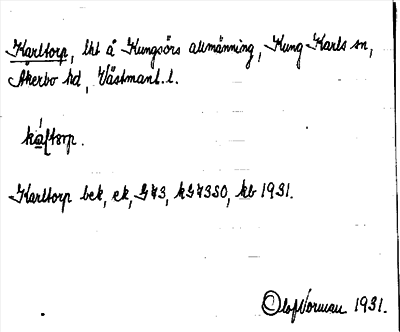 Karltorp, lht å Kungsörs allmänning, Kung Karls sn,
Åkerbo hd, Västmanl. l.
káłtɔrp.
Karltorp bek, ek, G73, kG73SO, kb 1931.
Olof Norman 1931.